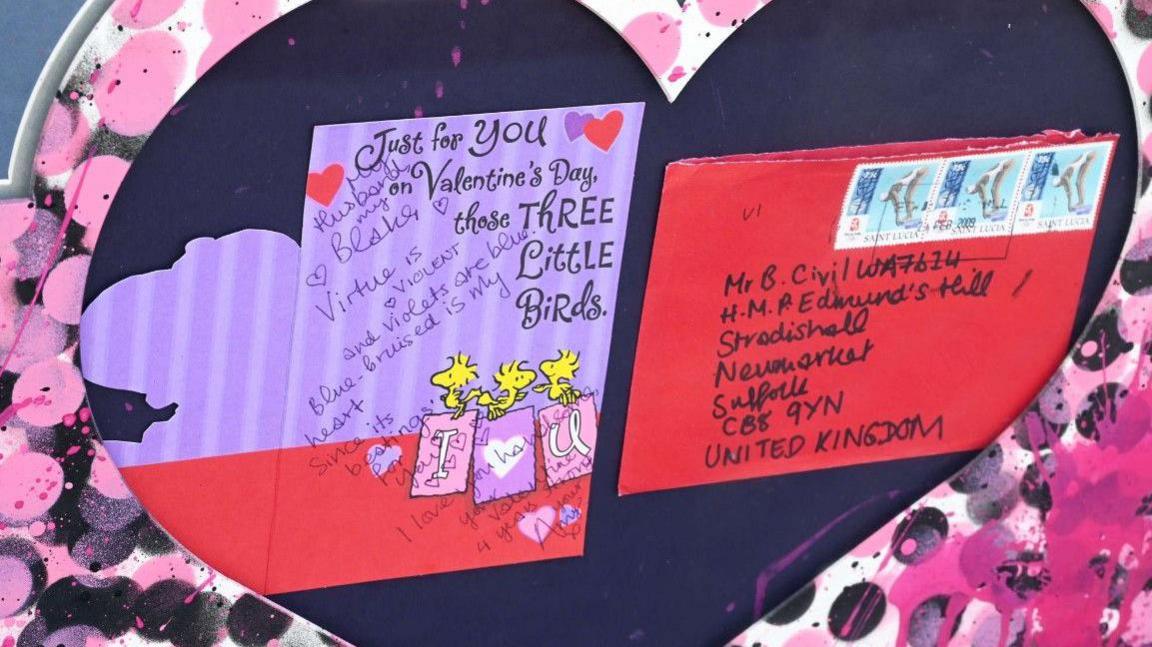 Just for YOU
on Valentine's Day,
those THREE
LiTTLE
BiRDS.
Husband,
my
Blake,
Virtue is
VIOLENT
and violets are blue
Blue-bruised is my
heart
Since its
beatings
for
I love you
4 years
I
U
VI
25c
SAINT LUCIA
FEB 2009
SAINT LUCIA
SAINT LUCIA
Mr B. Civil WA7614
H.M.P. Edmund's Hill
Stradishall
Newmarket
Suffolk
CB8 9YN
UNITED KINGDOM